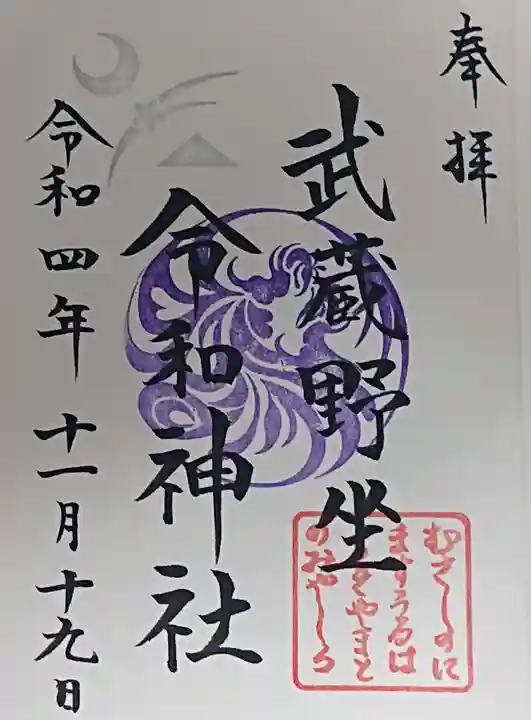 奉拝
武蔵野坐
令和神社
令和四年十一月十九日
むさしのに
ますうるは
しきやまと
のみやしろ